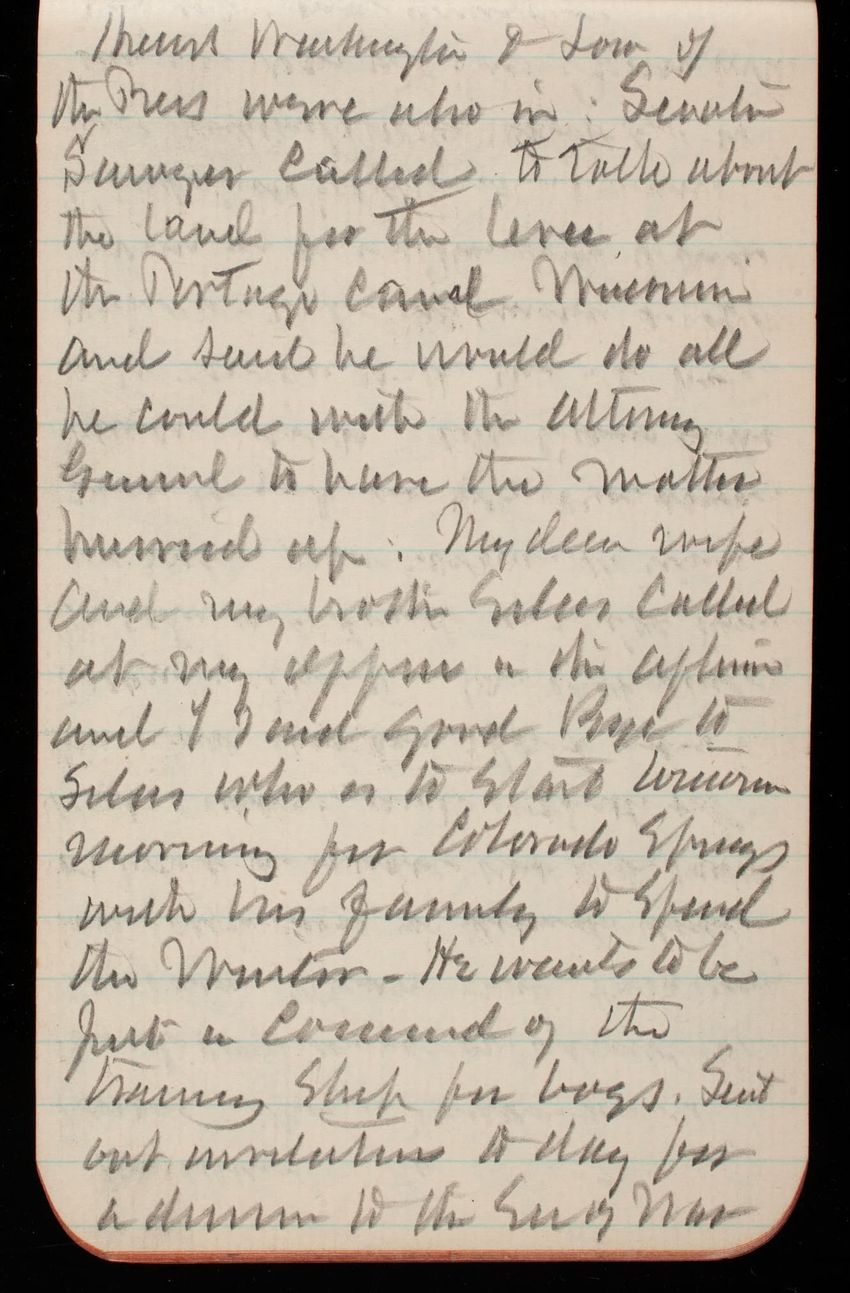 Washington & Low of
the Press were also in : Senator
Sawyer called to talk about
the land for the levee at
the Portage canal Wisconsin
and said he would do all
he could with the attorney
General to have the matter
hurried up. My dear wife
and my brother Silas called
at my office in the afternoon
and I said good bye to
Silas who is to start tomorrow
morning for Colorado Springs
with his family to spend
the Winter - He wants to be
put in command of the
training ship for boys. Sent
out invitations to day for
a dinner to the Sec of War